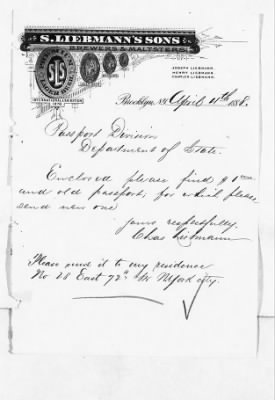 S. LIEBMANN'S SONS
BREWERS & MALTSTERS.
JOSEPH LIEBMANN.
HENRY LIEBMANN.
CHARLES LIEBMANN.
INTERNATIONAL EXHIBITION
1876
Brooklyn, N.Y. April 11th 1888.
Passport Division
Department of State.
Enclosed please find $1
and old passport, for which please
send new one
yours respectfully.
Chas Liebmann
Please send it to my residence
No 28 East 72nd Str N.York city.